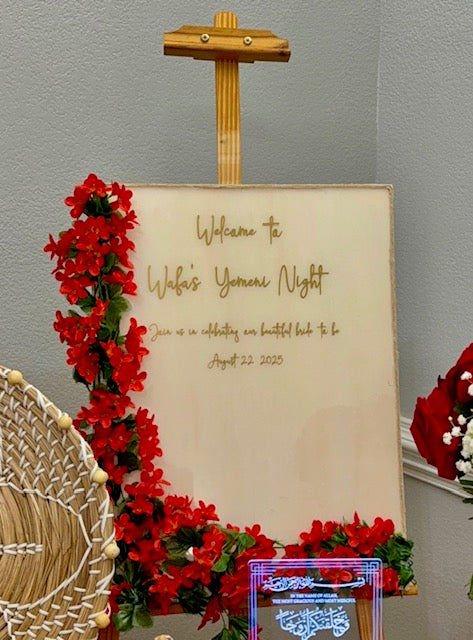 Welcome to
Wafa's Yemeni Night
Join us in celebrating our beautiful bride to be
August 22 2025
IN THE NAME OF ALLAH,
THE MOST GRACIOUS AND MOST MERCIFUL